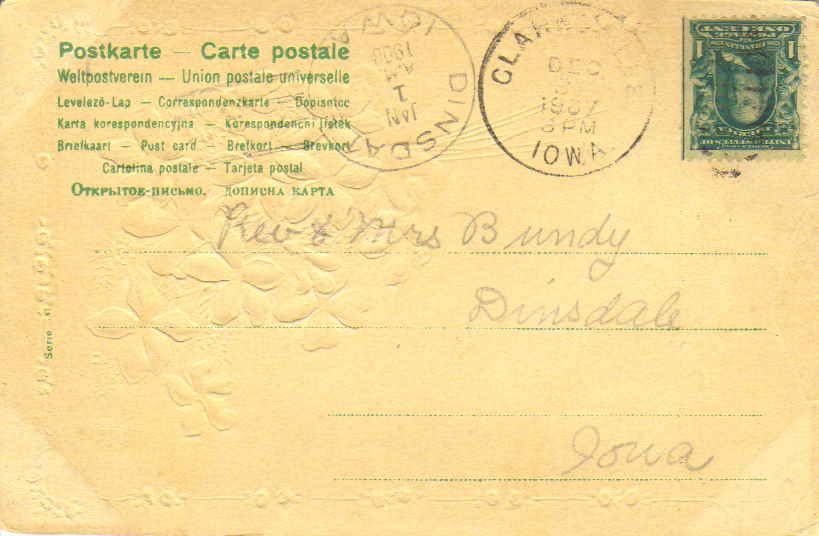 Postkarte — Carte postale
Weltpostverein — Union postale universelle
Levelező-Lap — Correspondenzkarte — Dopisnice
Karta korespondencyjna — Korespondenční lístek
Briefkaart — Post card — Brefkort — Brevkort
Cartolina postale — Tarjeta postal
Открытое-письмо. дописна карта
DINSDA
IOWA
JAN
1
AM
1908
DEC
1907
3 PM
IOWA
1 1
Rev & Mrs Bundy
Dinsdale
Iowa
Serie